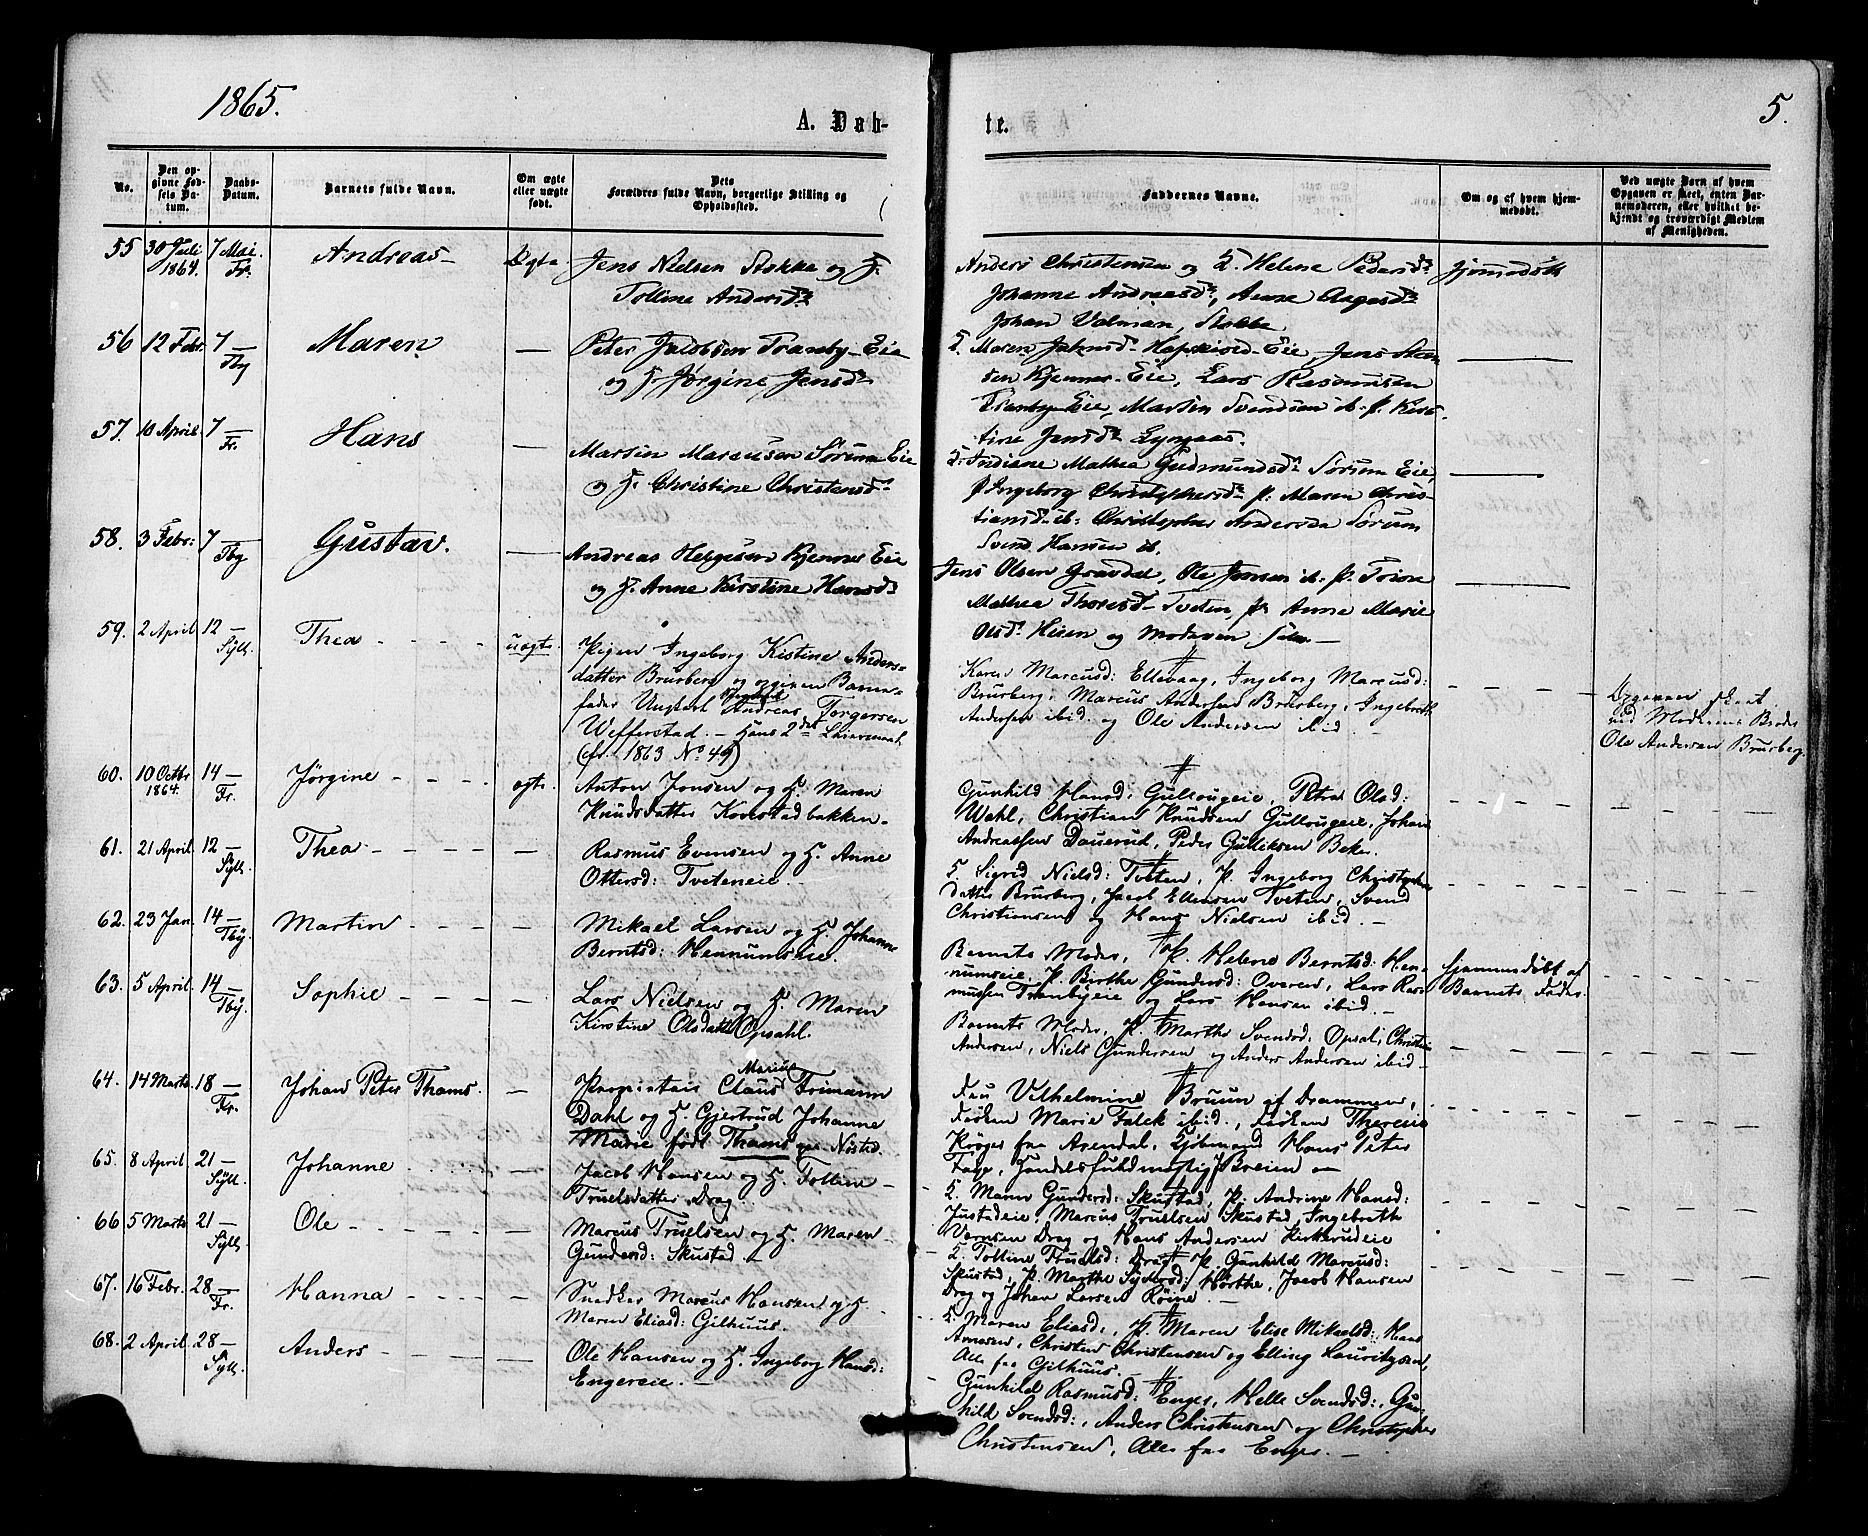 1865.
A. Døb-
te.
5.
No.
Den op-
givne Fød-
sels Da-
tum.
Daabs-
Datum.
Barnets fulde Navn.
Om ægte
eller uægte
født.
Dets
Forældres fulde Navn, borgerlige Stilling og
Opholdssted.
Faddernes Navne.
Om og af hvem hjem-
medøbt.
Ved uægte Barn af hvem
Opgaven er skeet, enten Bar-
nemoderen, eller hvilket be-
kjendt og troværdigt Medlem
af Menigheden.
55 30 Juli 7 Mai. Andreas Ægte Jens Nielsen Stokke og H.
1864. Fr. Tolline Andersdr
Anders Christensen og H. Helene Pedersdr hjemmedøbt
Johanne Andreasdr, Anne Aagesdr
Johan Valman, Stokke
56 12 Febr. 7 — Maren — Peter Jacobsen Tranby-Eie
Tby og H. Jørgine Jensdr
H. Maren Hapkisrd-Eie, Jens
Kjenner-Eie, Lars Rasmusen
Tranby-Eie, Marten Svendsen ib. p. Kirs-
tine Jensdr Lyngaas.
57. 10 April. 7 — Hans — Martin Marcusen Sørum Eie
Fr. og H. Christine Christensdr
H. Indiane Mathea Gudmundsdr Sørum Eie,
p Ingeborg Christophersdr p. Maren Chris-
tiansdr ib: Christopher Andersen Sørum
Svend Hansen ib.
58. 3 Febr: 7 — Gustav. — Andreas Helgesen Kjenner Eie
Tby og H. Anne Kirstine Hansdr
Jens Olsen Gravdal, Ole Jensen ib: p. Trine
Mathea Thoresdr Tveten, p. Anne Marie
Olsdr Heien og Moderen selv —
59. 2 April 12 — Thea uægte Pigen Ingeborg Kistine Anders-
Sÿll. datter Brurberg og opgiven Barne-
fader Ungkarl Andreas Torgersen
Wefferstad. — Hans 2det Leiermaal
(cfr. 1863 No 49)
Karen Marcusd: Ellevaag, Ingeborg Marcusd:
Brurberg, Marcus Andersen Brurberg, Ingebreth
Andersen ibid. og Ole Andersen ibid —
Opgaven skeet
ved Moderens Broder
Ole Andersen Brurberg.
60. 10 Octbr 14 — Jørgine ægte. Anton Jensen og H. Maren
1864. Fr. Knudsdatter Korstadbakken —
Gunhild Hansd: Gullougeie, Petra Olsd:
Wahl, Christian Knudsen Gullougeie, Johan
Andreassen Dauerud, Peder Gulliksen Beker.
61. 21 April 12 — Thea — Rasmus Evensen og H. Anne
Sÿll. Ottersd: Tveteneie —
H. Sigrid Nielsd: Tveten, P. Ingeborg Christophers
datter Brurberg, Jacob Ellensen Tveten, Svend
Christiansen og Hans Nielsen ibid. —
62. 23 Jan. 14 — Martin — Mikael Larsen og H. Johanne
Tbÿ. Berntsd: Hennumseie.
Barnets Moder, P. Helene Berntsd: Hen-
numseie, P. Birthe Gundersd: Overen, Lars Ras-
musen Tranbyeie og Lars Hansen ibid. —
hjemmedøbt af
Barnets Fader.
63. 5 April 14 — Sophie — Lars Nielsen og H. Maren
Tbÿ. Kirstine Olsdatter Opsahl.
Barnets Moder, P. Marthe Svendsd: Opsal, Christian
Andersen, Niels Gundersen og Anders Andersen ibid —
64. 14 Marts 18 — Johan Peter Thams. — Proprietair Claus Marius Frimann
Fr. Dahl og H. Gjertrud Johanne
Marie født Thams Nøsted.
Fru Vilhelmine Bruun af Drammen,
Frøken Marie Falck ibid., Frøken Therese
Krøger fra Arendal, Kjøbmand Hans Peter
Faye, Handelsfuldmægtig J Breien —
65. 8 April 21 — Johanne — Jacob Hansen og H. Tolline
Sÿll. Truelsdatter Drag
H. Maren Gundersd: Skustad, P. Andrine Hansd:
Justadeie, Marcus Truelsen Skustad Ingebreth
Vernsen Drag og Hans Andersen Kirkerudeie
66 5 Marts 21 — Ole — Marcus Truelsen og H. Maren
Sÿll. Gundersd: Skustad —
H. Tolline Truelsd: Drag, P. Gunhild Marcusd:
Skustad, P. Marthe Syversd: Hørthe, Jacob Hansen
Drag og Johan Larsen Røine —
67. 16 Febr. 28 — Hanna — Snedker Marcus Hansen og H.
Fr. Maren Eliasd: Gilhuus.
H. Maren Eliasd:, P. Maren Elise Mikaelsd: Hans
Arnesen, Christen Christensen og Elling Lauritzsen,
Alle fra Gilhuus. —
68. 2 April 28 — Anders — Ole Hansen og H. Ingeborg Hansd:
Sÿll. Engereie. —
Gunhild Rasmusd: Enger, Helle Svendsd:, Gun-
hild Svendsd:, Anders Christensen og Christopher
Christensen, Alle fra Enger. —